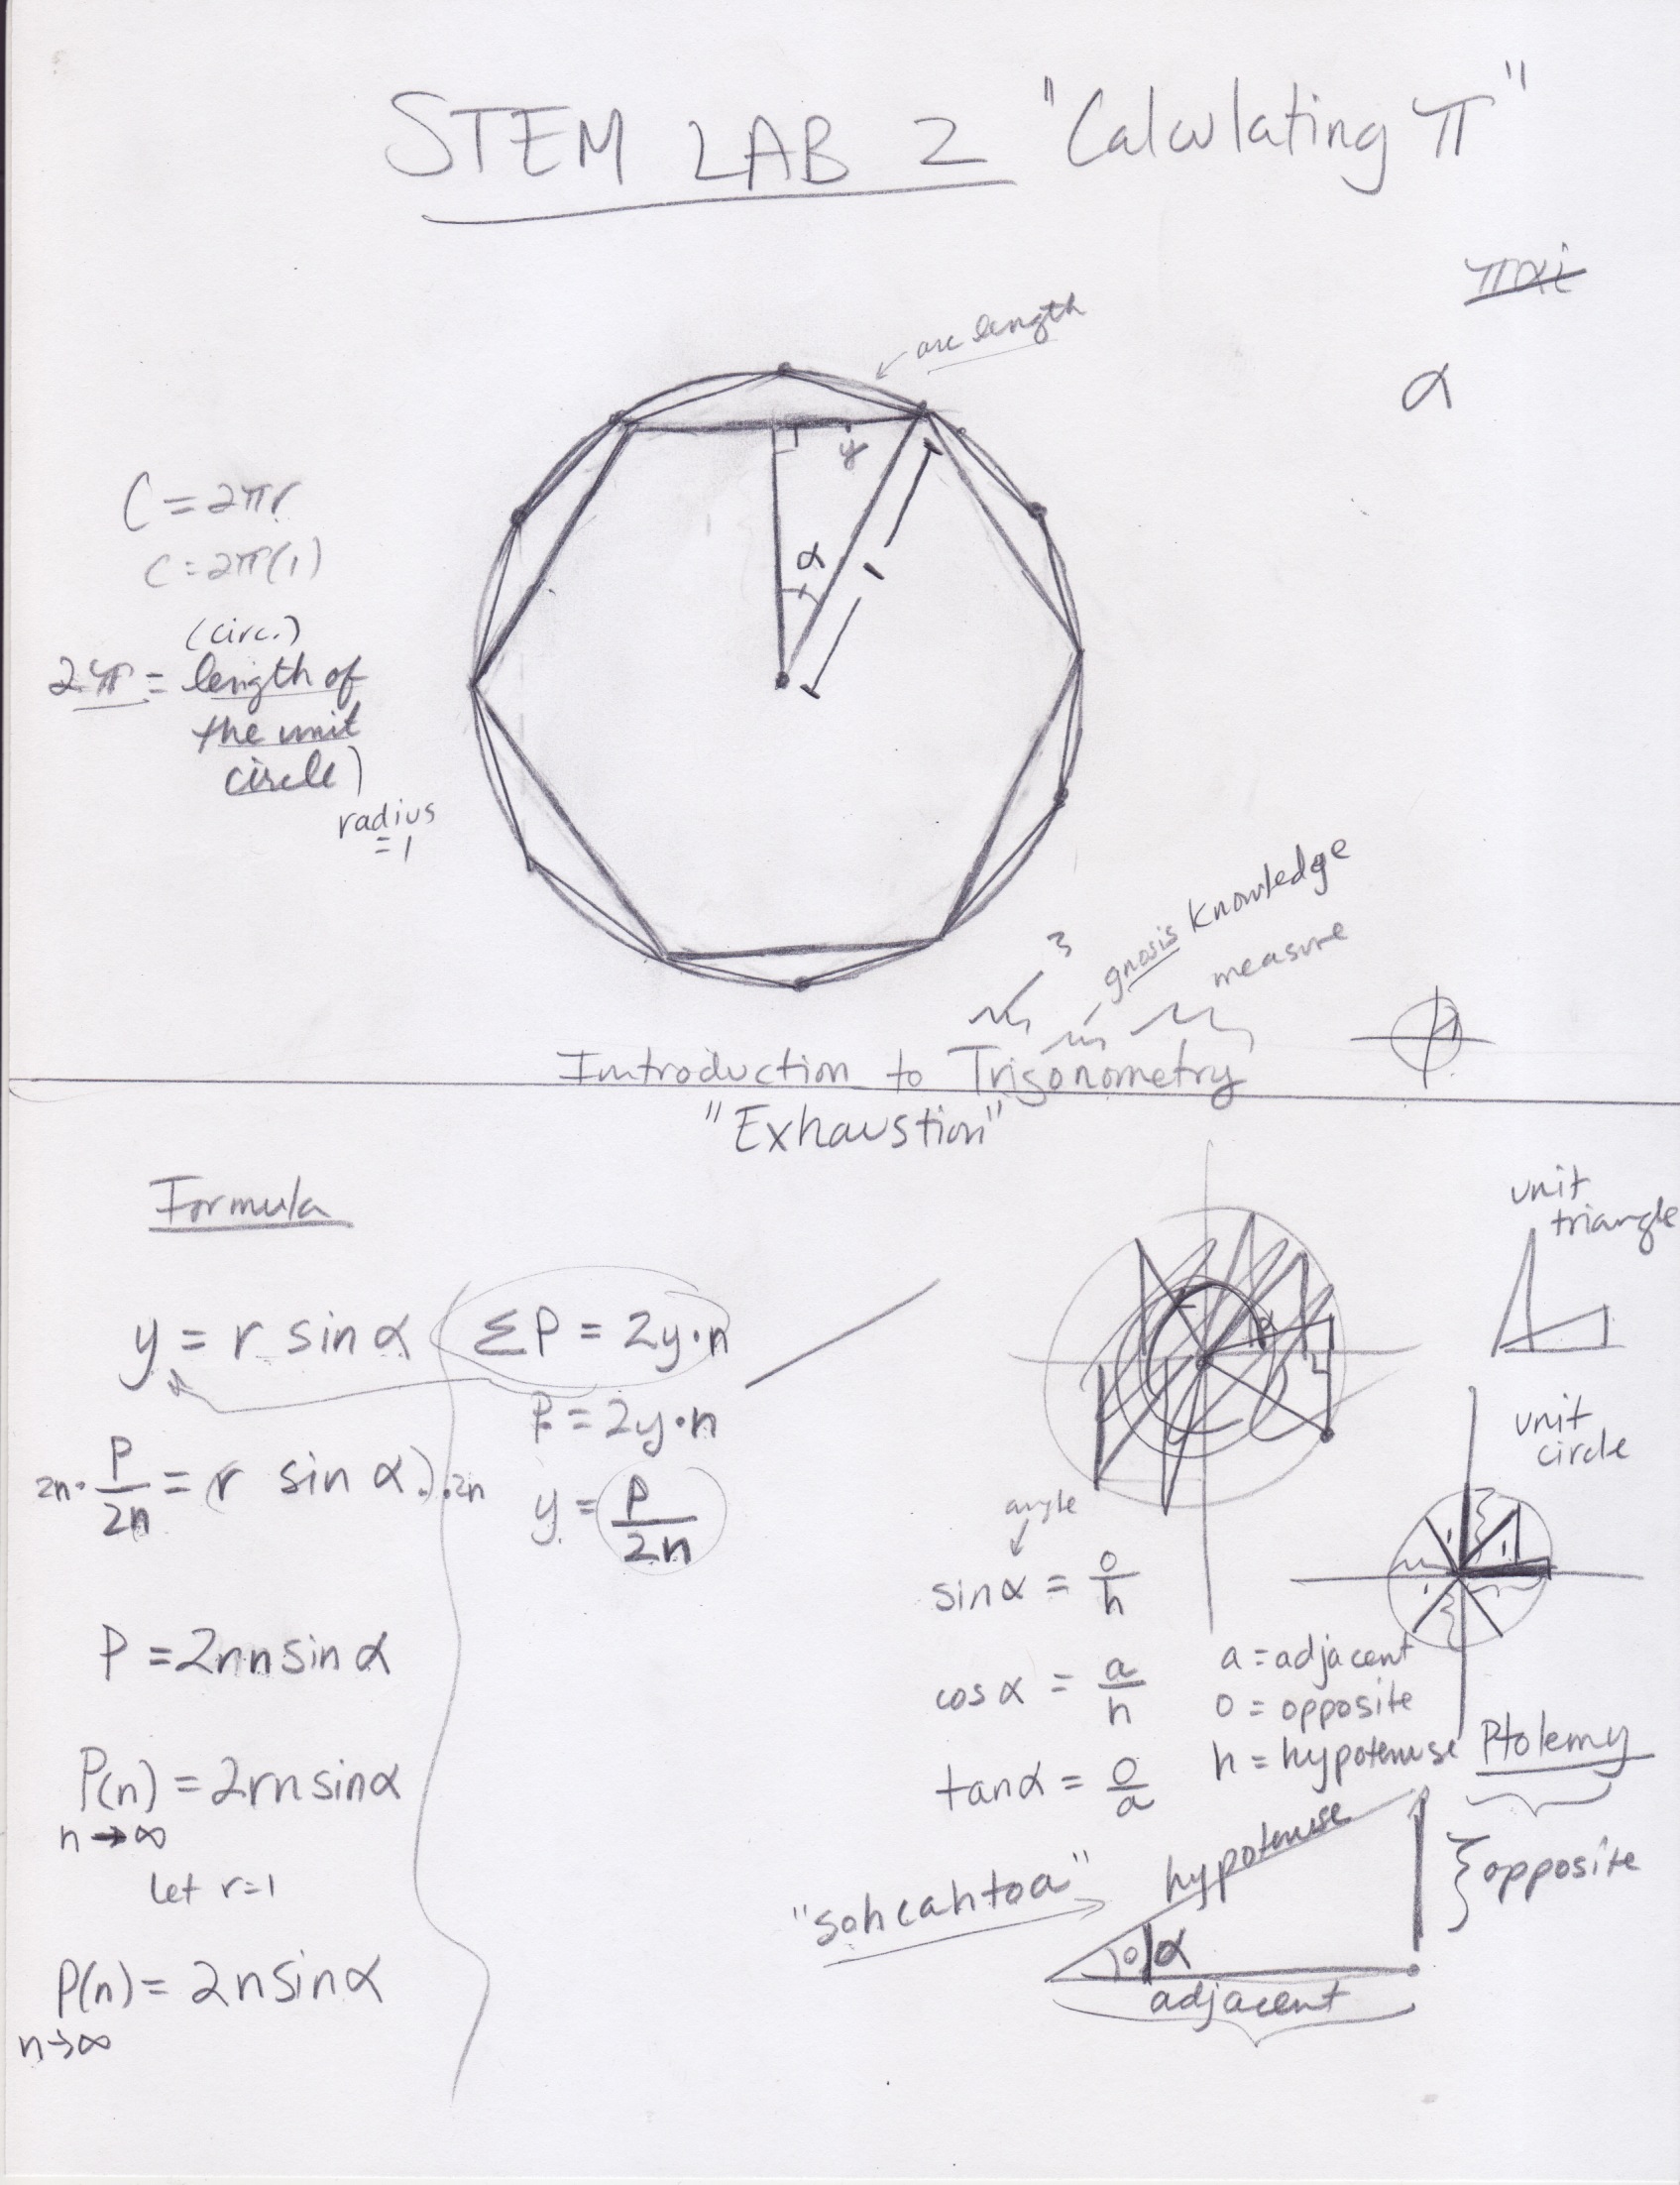 STEM LAB 2 "Calculating π"
παi
α
arc length
y
α
1
C = 2πr
C = 2π(1)
(circ.)
2π = length of
the unit
circle)
radius
= 1
3
gnosis knowledge
measure
Introduction to Trigonometry
"Exhaustion"
Formula
y = r sin α
ΣP = 2y·n
P = 2y·n
2n · P/2n = (r sin α) · 2n
y = P/2n
P = 2rn sin α
P(n) = 2rn sin α
n → ∞
let r = 1
P(n) = 2n sin α
n → ∞
unit
triangle
unit
circle
angle
sin α = o/h
cos α = a/h
tan α = o/a
a = adjacent
o = opposite
h = hypotenuse
Ptolemy
"sohcahtoa"
hypotenuse
opposite
α
adjacent